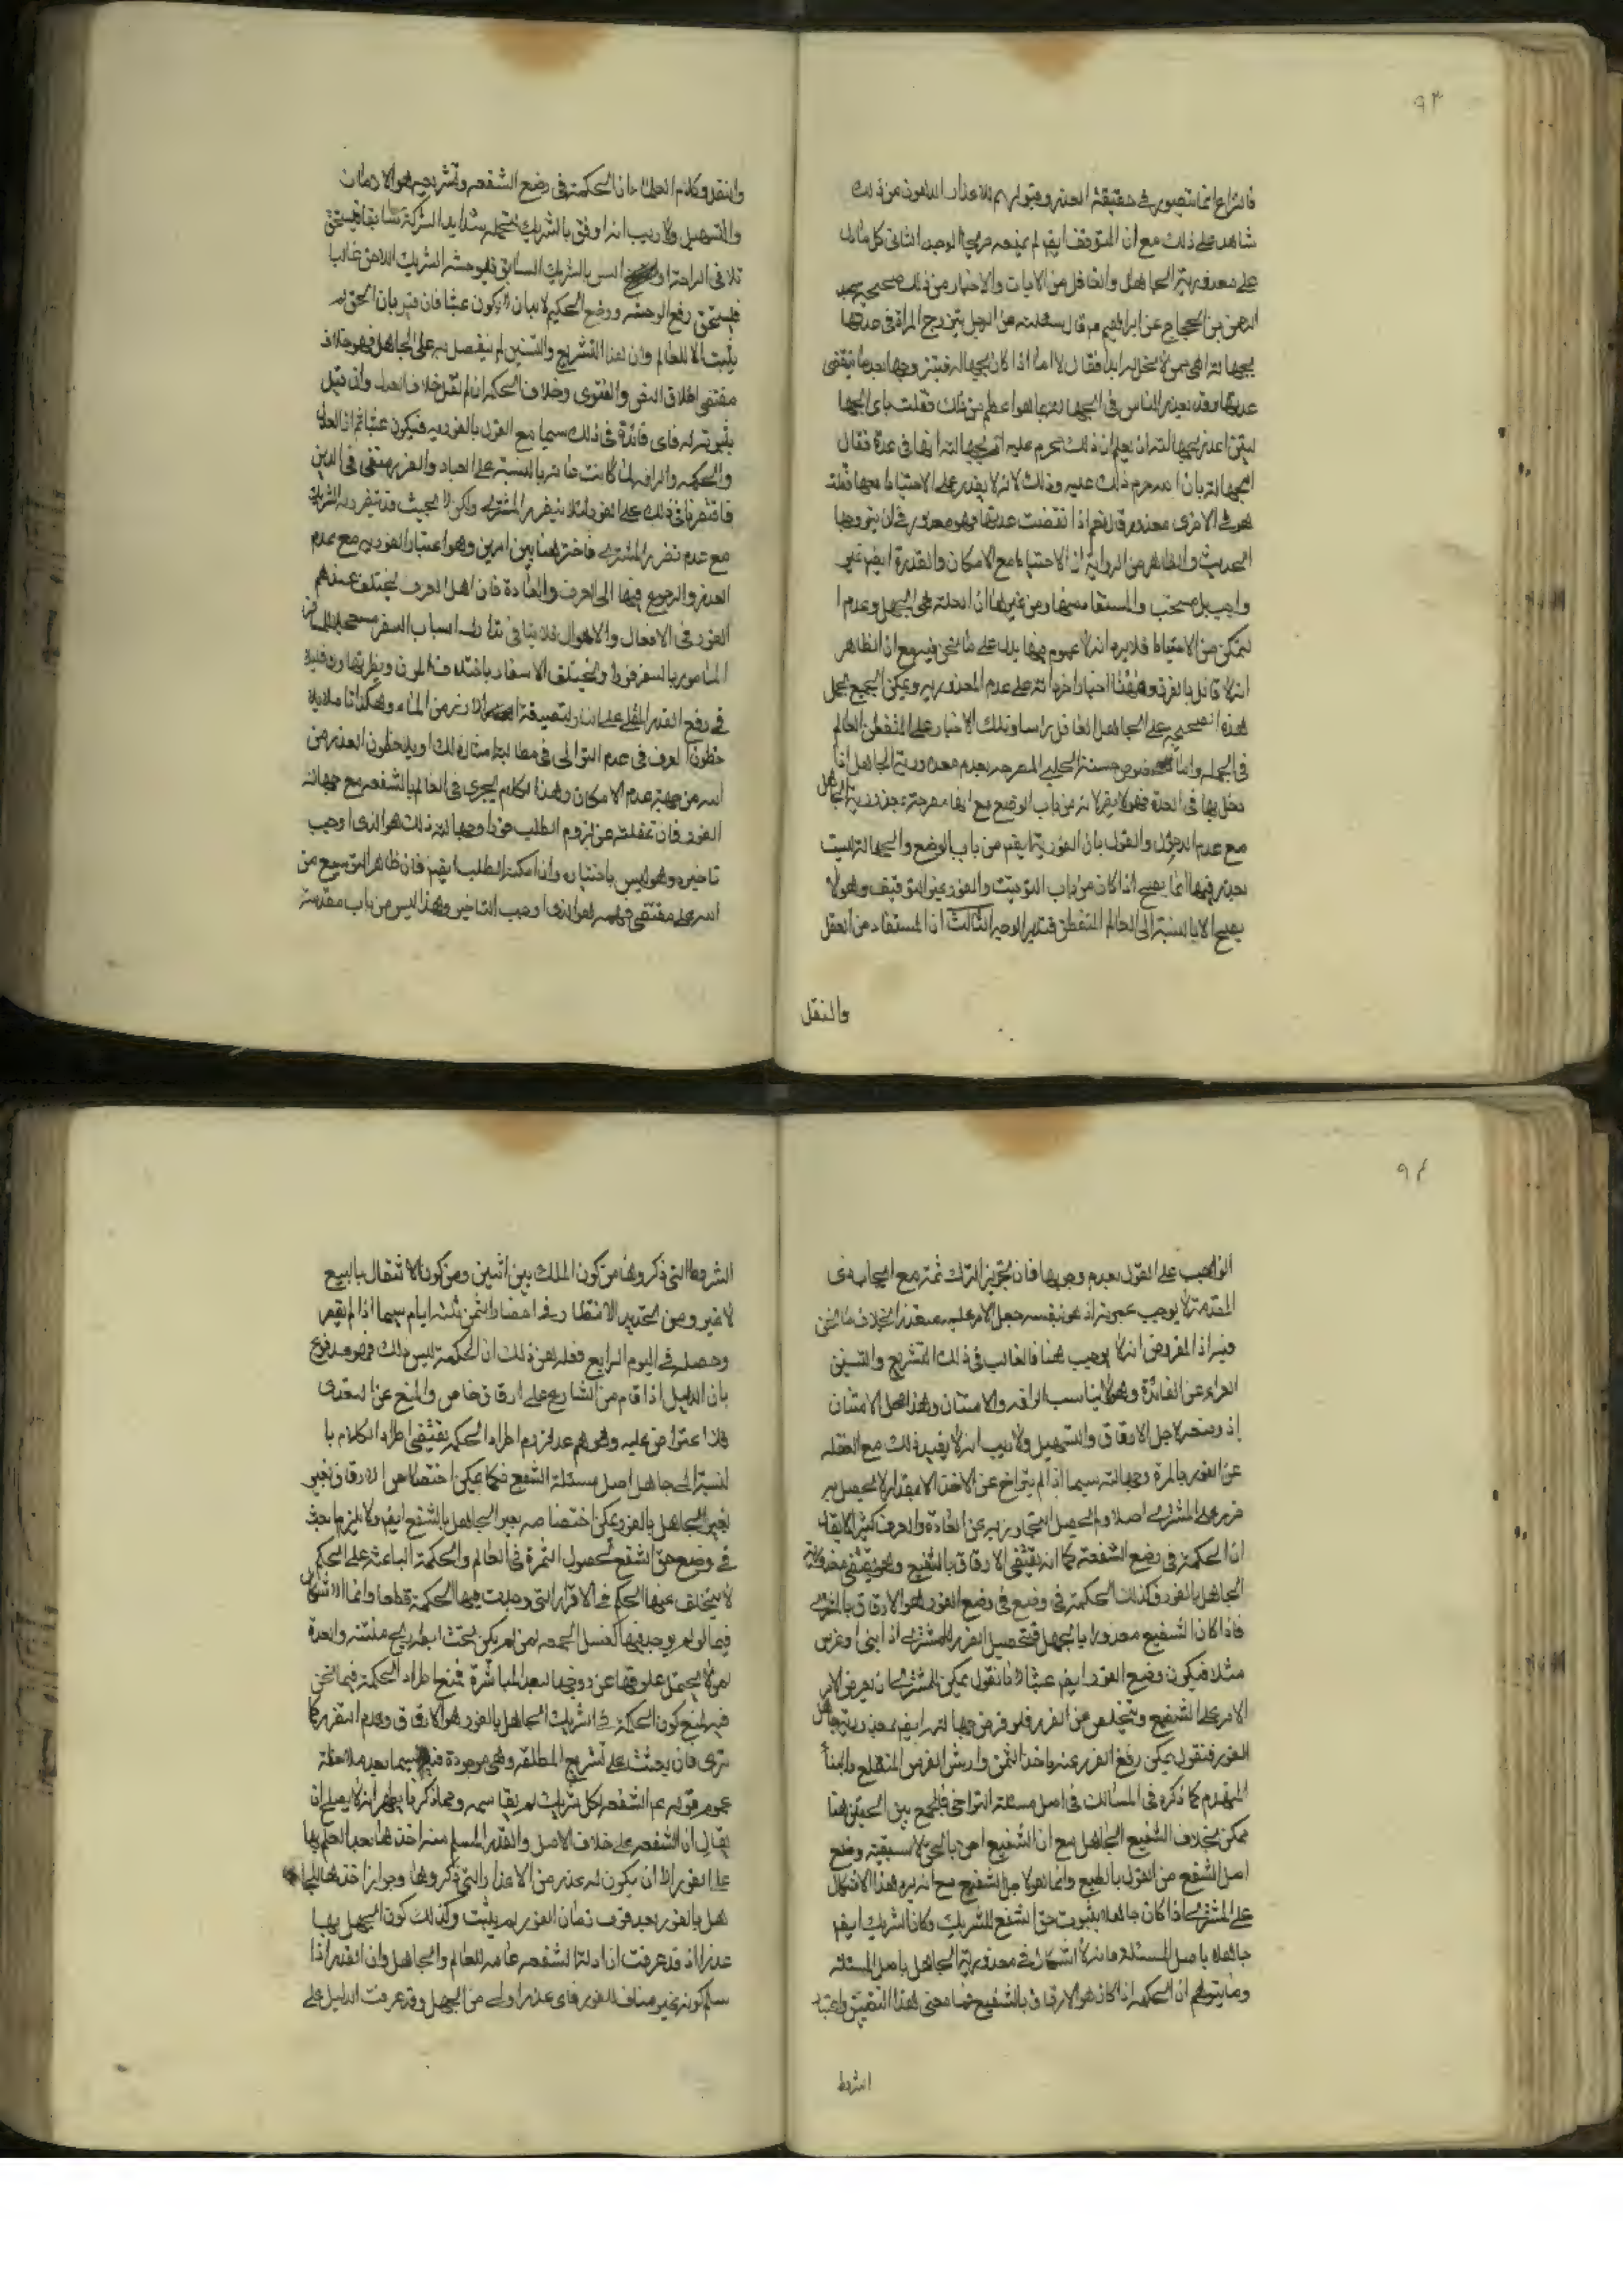 ٩٣
فالنزاع انما يتصور في حقيقة العذر وقبولهم للاعذار الاهون من ذلك
شاهد على ذلك مع ان المتوقف ايضا لم يمنعه من الوجه الثاني كل ما دل
على معذورية الجاهل والغافل من الايات والاخبار من ذلك صحيحة عبد
الرحمن بن الحجاج عن ابي ابراهيم ع قال سئلته عن الرجل يتزوج المراة في عدتها
بجهالة اهي ممن لا تحل له ابدا فقال لا اما اذا كان بجهالة فليتزوجها بعد ما تنقضي
عدتها وقد يعذر الناس في الجهالة بما هو اعظم من ذلك فقلت باي الجهالتين
اعذر بجهالته ان يعلم ان ذلك يحرم عليه ام بجهالته انها في عدة فقال
الجهالة بان الله حرم ذلك عليه وذلك لانه لا يقدر على الاحتياط معها فقلت
هو في الاخرى معذور قال نعم اذا انقضت عدتها فهو معذور في ان يتزوجها
الحديث والظاهر من الرواية ان الاحتياط مع الامكان والقدرة ايضا غير
واجب بل مستحب والمستفاد منها ومن غيرها ان العلة هي الجهل وعدم
التمكن من الاحتياط فلا يرد انه لا عموم فيها يدل على ما نحن فيه مع ان الظاهر
انه لا قائل بالفرق وههنا اخبار اخر دالة على عدم المعذورية ويمكن الجمع بحمل
هذه الصحيحة على الجاهل الغافل راسا وتلك الاخبار على المتفطن العالم
في الجملة واما خصوص حسنة الحلبي المصرحة بعدم معذورية الجاهل اذا
دخل بها في العدة فهو لا يضر لانه من باب الوضع مع انها مصرحة بمعذورية الجاهل
مع عدم الدخول والقول بان الفورية ايضا من باب الوضع والجهالة ليست
بعذر فيها انما يصح اذا كان من باب التوقيت والفور غير التوقيف وهو لا
يصح الا بالنسبة الى العالم المتفطن فتدبر الوجه الثالث ان المستفاد من العقل
والنقل
والنقل وكلام العلماء ان الحكمة في وضع الشفعة وتشريعه هو الارفاق
والتسهيل ولا ريب انه اوفق بالشريك لتحمله شدايد الشركة سابقا فيستحق
تلافي الراحة والانس بالشريك السابق فلوحشة الشريك اللاحق غالبا
فيستحق رفع الوحشة ووضع الحكيم لا بد ان لا يكون عبثا فان قيل بان الحق لم
يثبت الا للعالم وان هذا التشريع والتسنين لم يتفضل به على الجاهل فهو خلاف
مقتضى اطلاق النص والفتوى وخلاف الحكمة ان لم نقل خلاف العدل وان قيل
بثبوته له فاي فائدة في ذلك سيما مع القول بالفورية فيكون عبثا ثم ان العدل
والحكمة والرافة لما كانت عامة بالنسبة على العباد والضرر منتفي في الدين
فاقتصرنا في ذلك على الفور لئلا يتضرر المشتري ولكن لا بحيث قد يتضرر به الشريك
مع عدم تضرر المشتري فاخترنا هنا بين امرين وهو اعتبار الفورية مع عدم
العذر والرجوع فيها الى العرف والعادة فان اهل العرف يختلف عندهم
الفور في الافعال والاحوال فلا ينافي تدارك اسباب السفر مستعجلا
المامور بالسفر فورا ويختلف الاسفار باختلاف
في رفع القدر المغلي على النار
خطون العرف في عدم التوالي في مطالبة امثال ذلك او يلاحظون العذر من
انه من جهة عدم الامكان وهذا الكلام يجري في العالم بالشفعة مع جهالة
الفور فان غفلته عن لزوم الطلب فورا وجهالته ذلك هو الذي اوجب
تاخيره وهو ليس باختياره وان امكنه الطلب ايضا فان ظاهر التوسيع من
امر على مقتضى فهمه هو الذي اوجب التاخير وهذا ليس من باب مقدمة
٩٤
الواجب على القول بعدم وجوبها فان تجويز الترك ثمة مع ايجاب ذي
المقدمة لا يوجب عبثية اذ هو بنفسه جعل الامر عليه متعذرا بخلاف ما نحن
فيه اذ المفروض انه لا يوجب هنا فالغالب في ذلك التشريع والتسنين
العراء عن الفائدة وهو لا يناسب الرافة والامتنان وهذا محل الامتنان
اذ وضعه لاجل الارفاق والتسهيل ولا ريب انه لا يفيد ذلك مع الغفلة
عن الفور بالمرة وجهالته سيما اذا لم يتراخ عن الاخذ الا بمقدار لا يحصل به
ضرر على المشتري اصلا ولم يحصل التجاوز به عن العادة والعرف كثيرا لا يقال
ان الحكمة في وضع الشفعة كما انه يقتضي الارفاق بالشفيع وهو يقتضي معذورية
الجاهل بالفور فكذلك الحكمة في وضع في وضع الفور هو الارفاق بالمشتري
فاذا كان الشفيع معذورا بالجهل فتحصيل الضرر للمشتري اذا ابنى او غرس
مثلا فيكون وضع الفور ايضا عبثا لانا نقول يمكن للمشتري ان يعرض الامر
الامر على الشفيع ويتخلص من الضرر فلو فرض جهالته ايضا بمعذورية جاهل
الفور فنقول يمكن رفع الضرر عنه باخذ الثمن وارش الغرس المنقلع والبناء
المنهدم كما ذكره في المسالك في اصل مسئلة التراخي فالجمع بين الحقين هنا
ممكن بخلاف الشفيع الجاهل مع ان الشفيع احق بالحق لاسبقيته ووضع
اصل الشفع من القول بالطبع وانما هو لاجل الشفيع مع انه يرد هذا الاشكال
على المشتري اذا كان جاهلا بثبوت حق الشفع للشريك وكان الشريك ايضا
جاهلا باصل المسئلة فانه لا اشكال في معذورية الجاهل باصل المسئلة
وما يتوهم ان الحكمة اذا كان هو الارفاق بالشفيع فما معنى هذا التضييق واعتبار
الشروط
الشروط التي ذكروها من كون الملك بين اثنين ومن كون الانتقال بالبيع
لا غير ومن تحديد الانتظار في احضار الثمن ثلثة ايام سيما اذا لم يقصر
وحصله في اليوم الرابع فعلم من ذلك ان الحكمة ليس ذلك فهو مدفوع
بان الدليل اذا قام من الشارع على ارفاق خاص والمنع عن التعدي
فلا اعتراض عليه وتوهم عدم لزوم اطراد الحكمة يقتضي اطراد الكلام با
لنسبة الى جاهل اصل مسئلة الشفع فكما يمكن اختصاص الارفاق بغير
بغير الجاهل بالفور يمكن اختصاصه بغير الجاهل بالشفع ايضا ولا يلزم عبث
في وضع حق الشفع لحصول الثمرة في العالم والحكمة الباعثة على الحكم
لا يتخلف عنها الحكم في الافراد التي وجدت فيها الحكمة قطعا وانما الاشكال
فيما لو لم يوجد فيها كغسل الجمعة لمن لم يكن تحت ابطه ريح منتنة والعدة
لمن لا يحتمل علوقها عن زوجها لبعد المباشرة فمنع اطراد الحكمة فيما نحن
فيه لمنع كون الحكمة في الشريك الجاهل بالفور هو الارفاق وعدم الضرر كما
ترى فان يحثث على تشريع المطلقة وهي موجودة فيه سيما بعد ملاحظة
عموم قوله ع الشفعة لكل شريك لم يقاسمه ومما ذكرنا يظهر انه لا يصلح ان
يقال ان الشفعة على خلاف الاصل والقدر المسلم منه اخذها بعد العلم بها
على الفور الا ان يكون له عذر من الاعذار التي ذكروها وجواز اخذها للجا
هل بالفور بعد فوت زمان الفور لم يثبت وكذلك كون الجهل بها
عذرا اذ قد عرفت ان ادلة الشفعة عامة للعالم والجاهل وان القدر اذا
سلم كونه غير مناف للفور فاي عذر اولى من الجهل وقد عرفت الدليل على